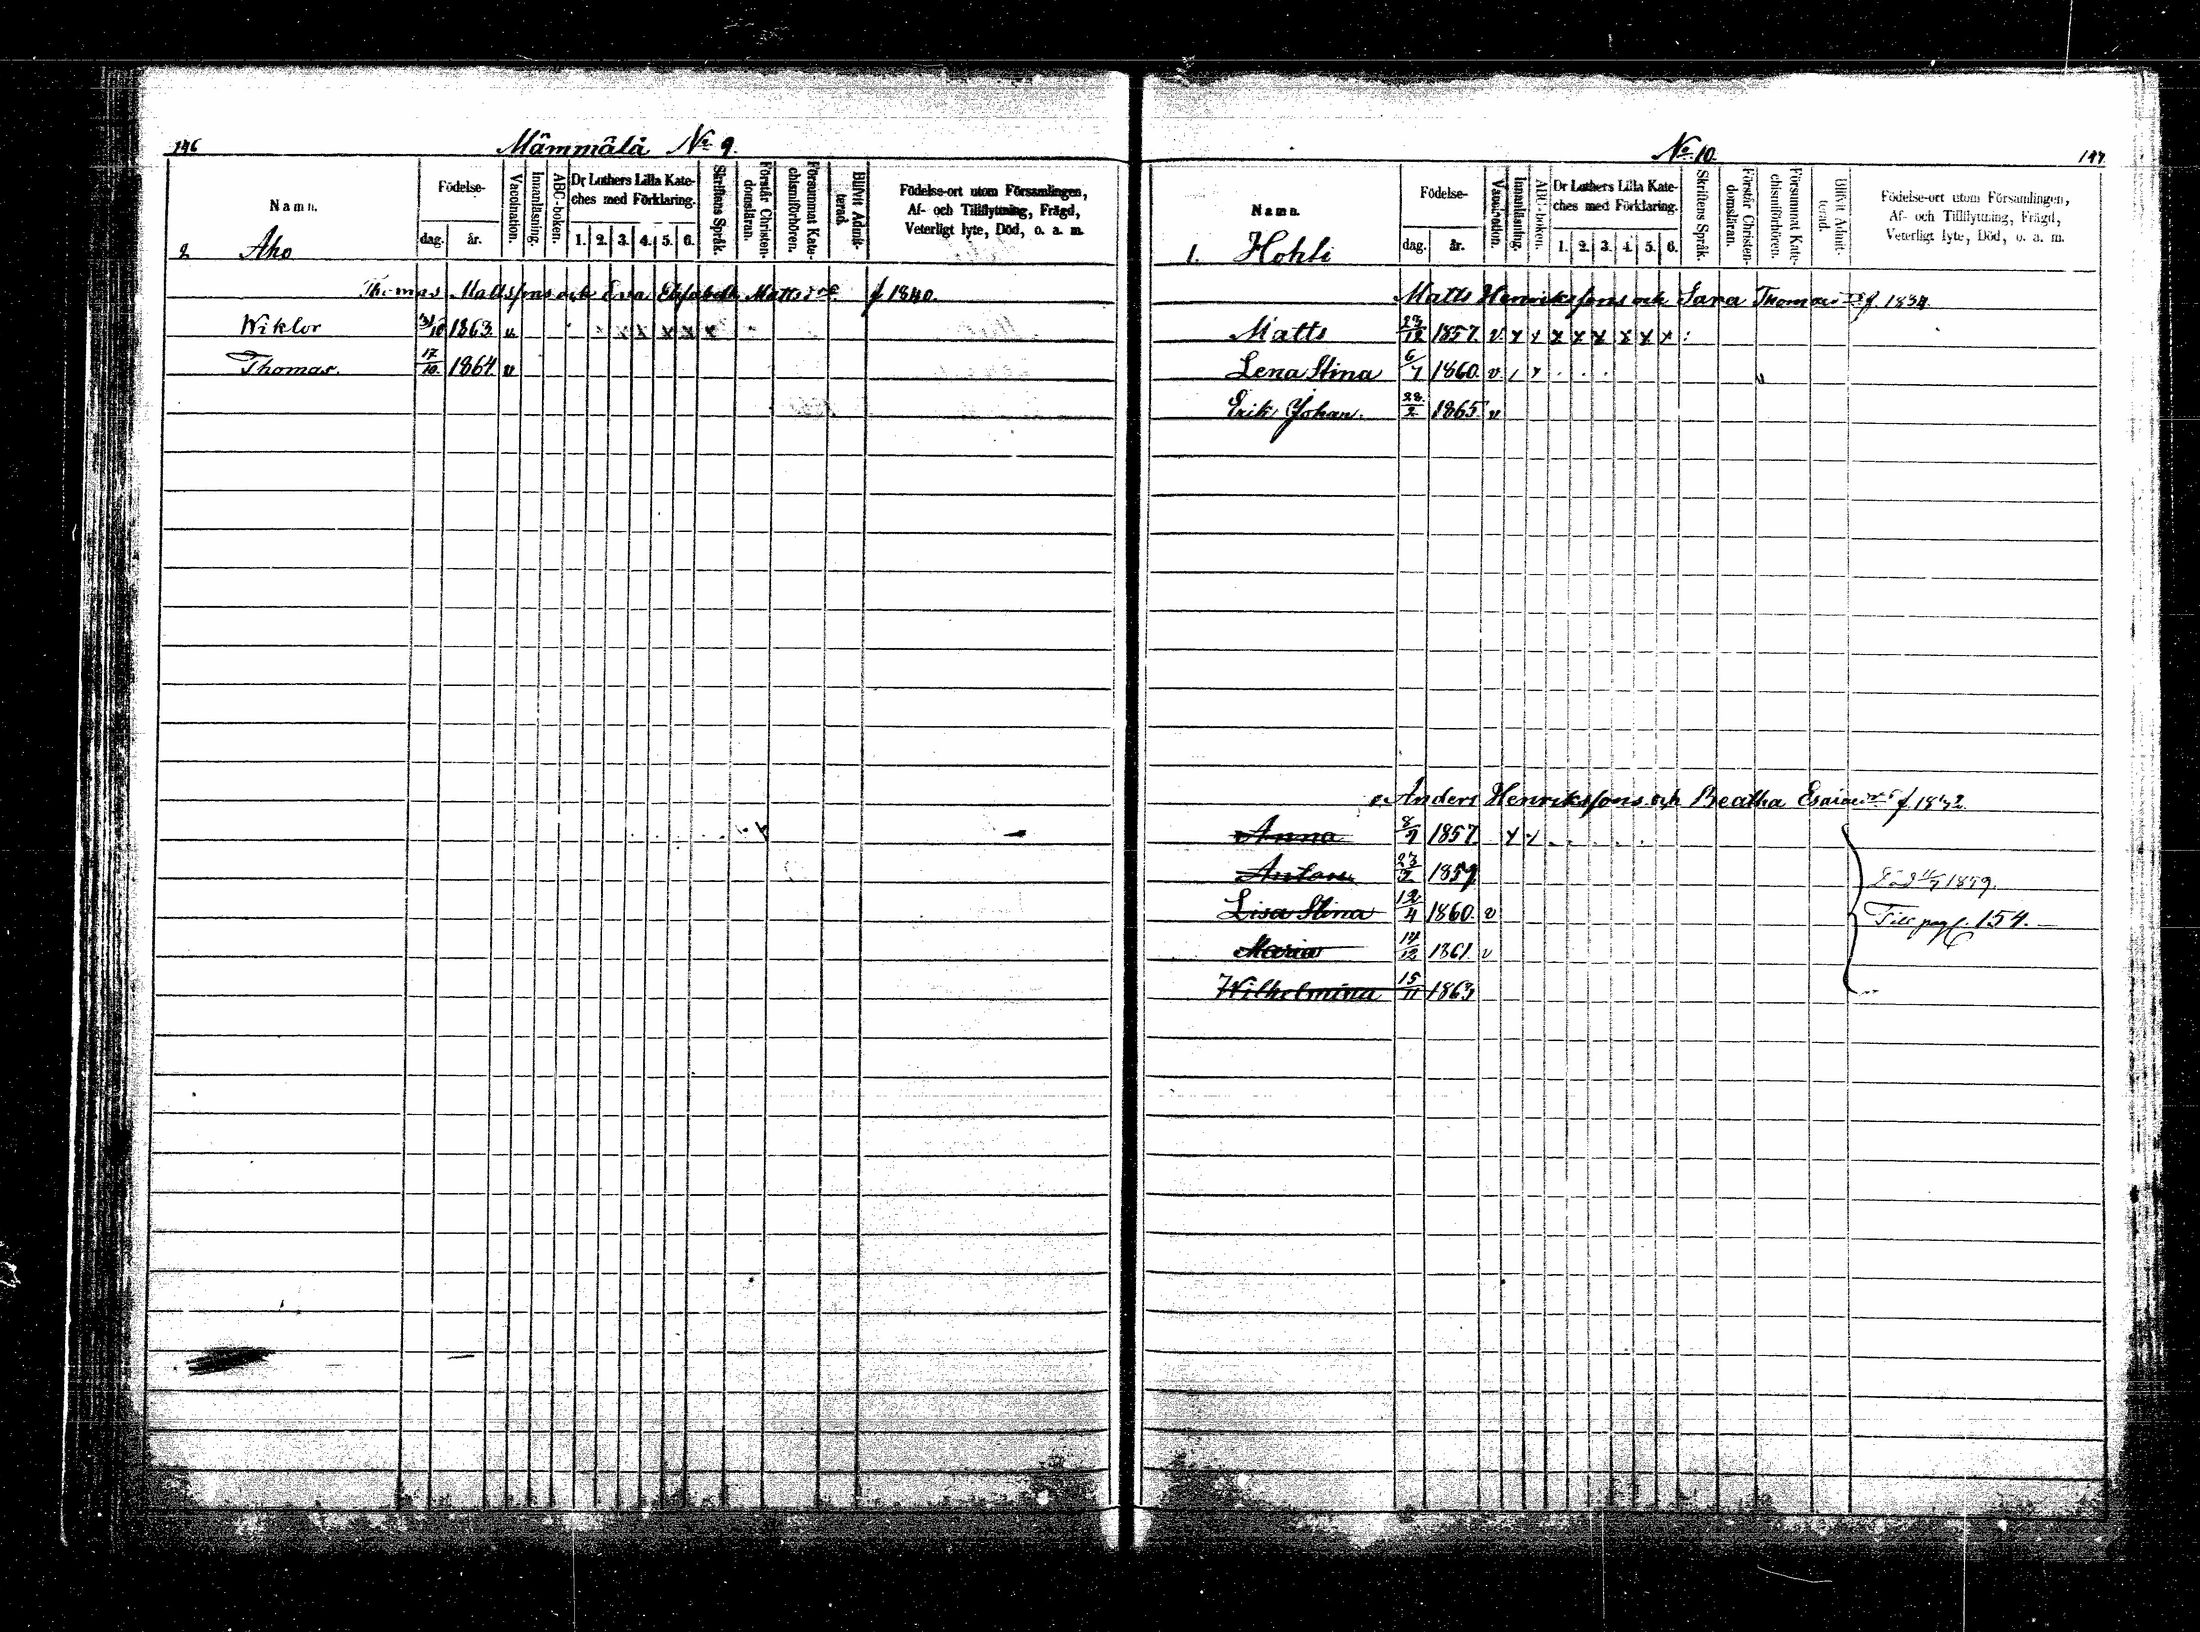 146
Mämmälä No 9.
Namn.
Födelse-
dag.
år.
Vaccination.
Innanläsning.
ABC-boken.
Dr Luthers Lilla Kate-
ches med Förklaring.
1. 2. 3. 4. 5. 6.
Skriftens Språk.
Förstår Christen-
domsläran.
Försummat Kate-
chismiförhören.
Blifvit Admit-
terad.
Födelse-ort utom Församlingen,
Af- och Tillflyttning, Frägd,
Veterligt lyte, Död, o. a. m.
2 Aho
Thomas Mattssons och Eva Elisabeth Mattsdr f 1840.
Wiktor 31/10 1863. v x x x x x
Thomas. 17/10. 1864. v
No 10.
147
Namn.
Födelse-
dag.
år.
Vaccination.
Innanläsning.
ABC-boken.
Dr Luthers Lilla Kate-
ches med Förklaring.
1. 2. 3. 4. 5. 6.
Skriftens Språk.
Förstår Christen-
domsläran.
Försummat Kate-
chismiförhören.
Blifvit Admit-
terad.
Födelse-ort utom Församlingen,
Af- och Tillflyttning, Frägd,
Veterligt lyte, Död, o. a. m.
1. Hohti
Matts Henrikssons och Sara Thomasdr f. 1834
Matts 23/12 1857. v. x x x x x x x x
Lena Stina 6/7 1860. v
Erik Johan. 28/2 1865. v
Anders Henrikssons och Beatha Esaiaedr f. 1832
Anna 8/7 1857. x x
Anton 23/3 1859 Död 11/7 1859.
Lisa Stina 12/4 1860. v Till pag. 154.
Maria 14/12 1861. v
Wilhelmina 15/11 1863